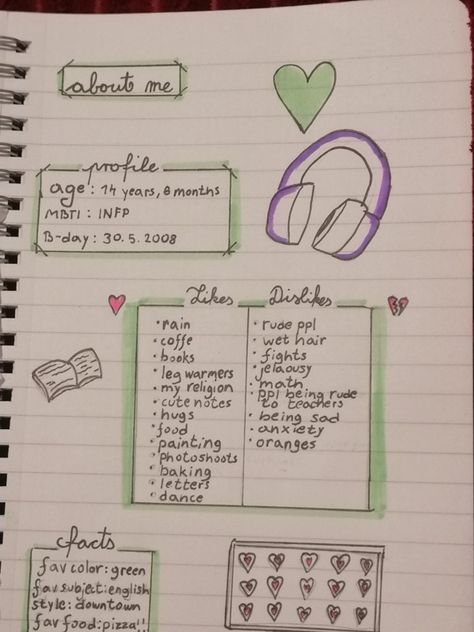 about me
profile
age: 14 years, 8 months
MBTI: INFP
B-day: 30.5.2008
Likes
• rain
• coffe
• books
• leg warmers
• my religion
• cute notes
• hugs
• food
• painting
• photoshoots
• baking
• letters
• dance
Dislikes
• rude ppl
• wet hair
• fights
• jelaousy
• math
• ppl being rude
to teachers
• being sad
• anxiety
• oranges
facts
fav color: green
fav subject: english
style: downtown
fav food: pizza!!